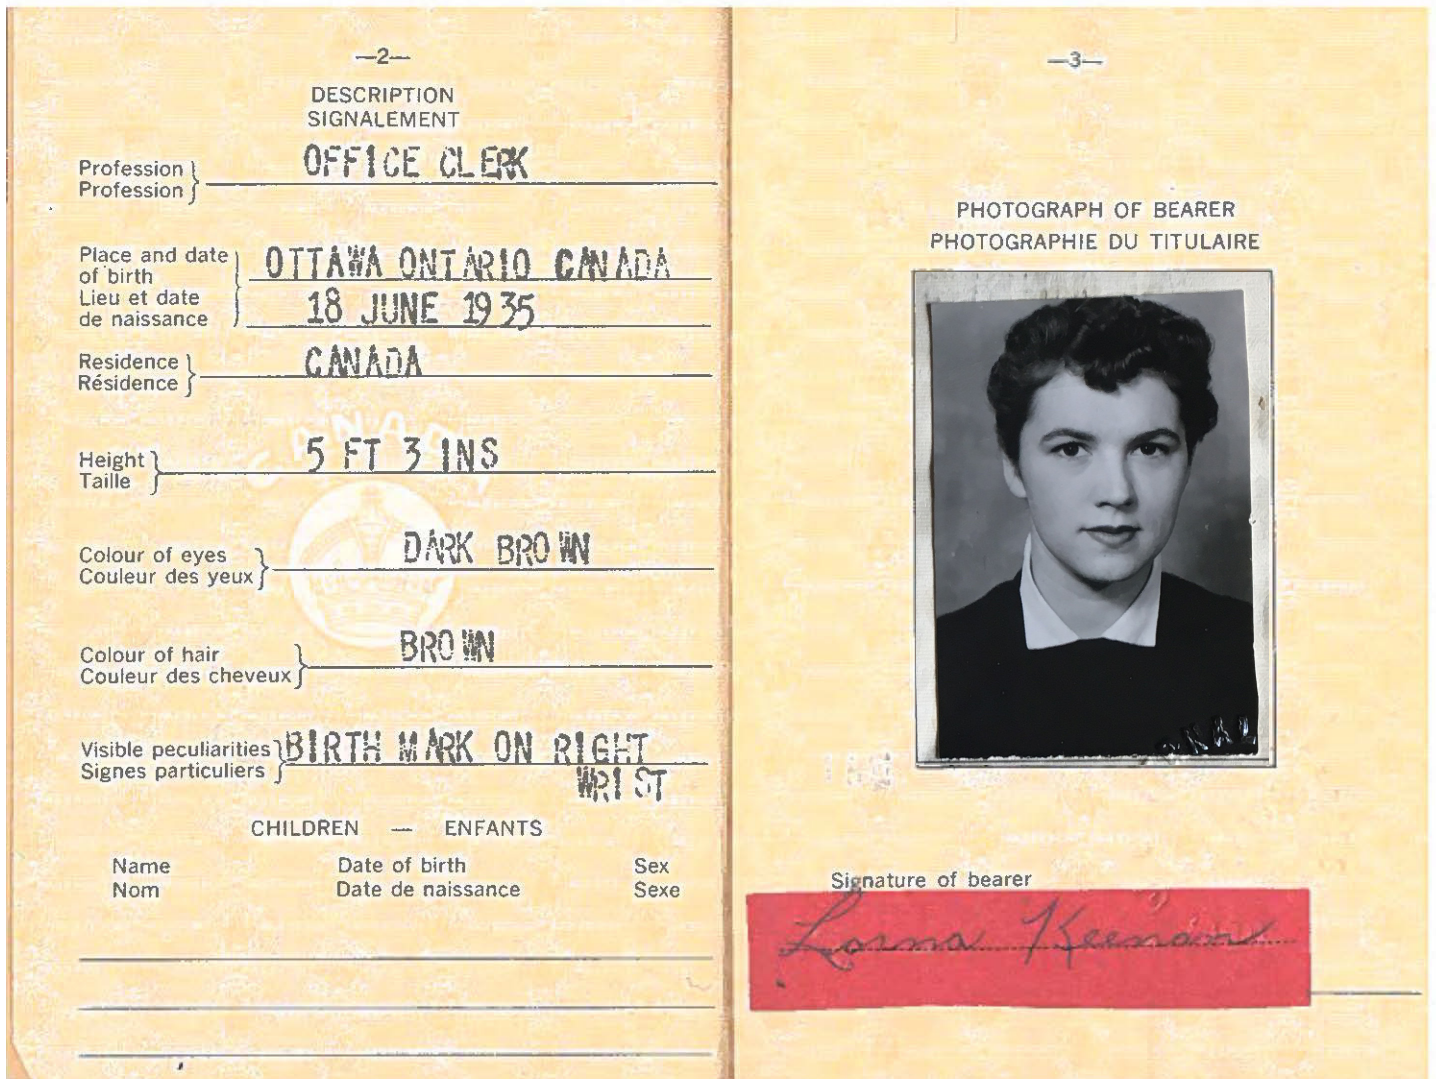 —2—
DESCRIPTION
SIGNALEMENT
Profession
Profession
OFFICE CLERK
Place and date
of birth
Lieu et date
de naissance
OTTAWA ONTARIO CANADA
18 JUNE 1935
Residence
Résidence
CANADA
CANADA
Height
Taille
5 FT 3 INS
Colour of eyes
Couleur des yeux
DARK BROWN
Colour of hair
Couleur des cheveux
BROWN
Visible peculiarities
Signes particuliers
BIRTH MARK ON RIGHT
WRIST
CHILDREN — ENFANTS
Name Date of birth Sex
Nom Date de naissance Sexe
—3—
PHOTOGRAPH OF BEARER
PHOTOGRAPHIE DU TITULAIRE
Signature of bearer
Lorna Keenan